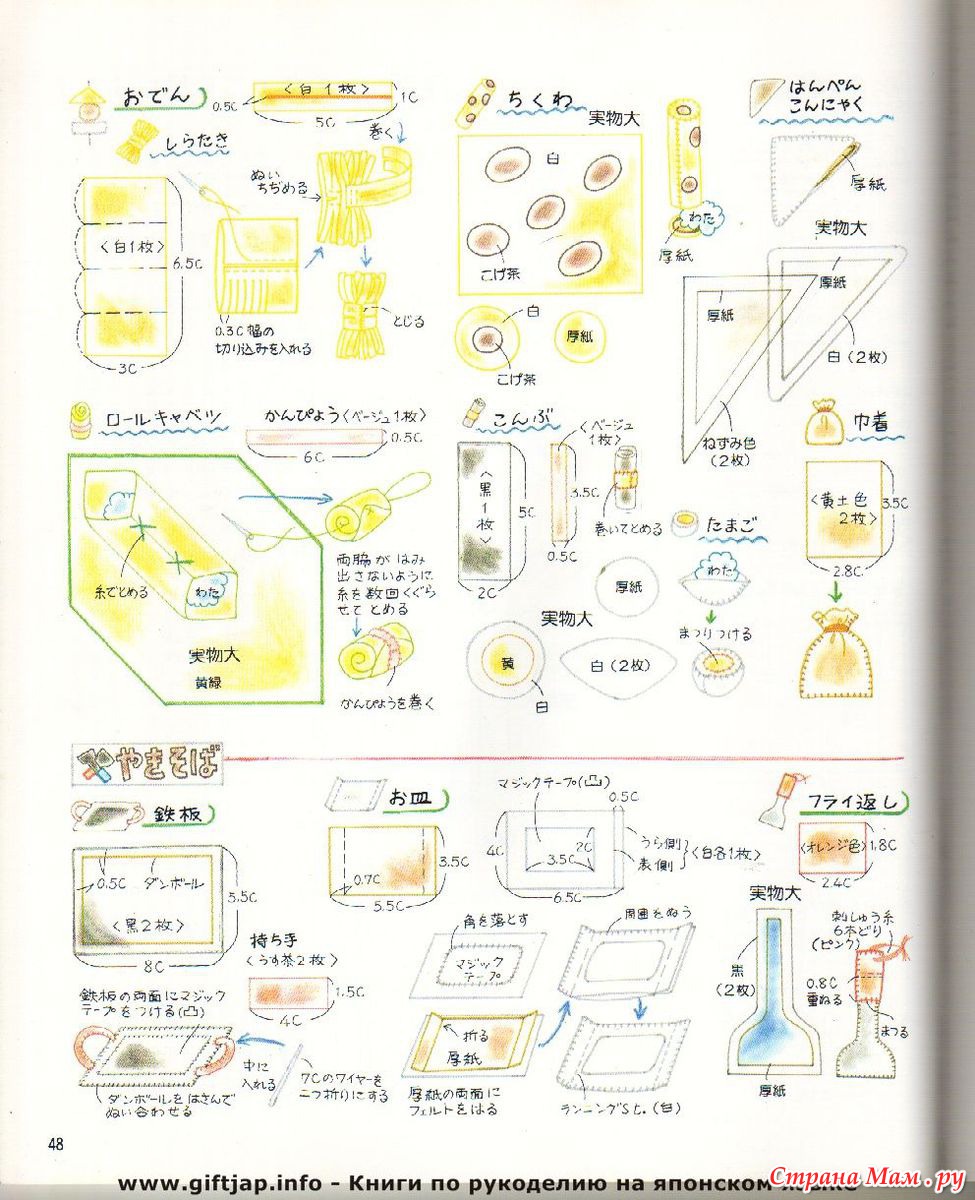 おでん
0.5C
〈白1枚〉
1C
5C
しらたき
巻く
ぬい
ちぢめる
〈白1枚〉
6.5C
3C
0.3C幅の
切り込みを入れる
とじる
ちくわ
実物大
白
こげ茶
わた
厚紙
白
こげ茶
厚紙
はんぺん
こんにゃく
厚紙
実物大
厚紙
厚紙
白(2枚)
ねずみ色
(2枚)
ロールキャベツ
かんぴょう〈ベージュ1枚〉
0.5C
6C
糸でとめる
わた
実物大
黄緑
両脇がはみ
出さないように
糸を数回くぐら
せてとめる
かんぴょうを巻く
こんぶ
〈黒1枚〉
5C
2C
〈ベージュ
1枚〉
3.5C
0.5C
巻いてとめる
たまご
厚紙
わた
実物大
まつりつける
黄
白
白(2枚)
巾着
〈黄土色
2枚〉
3.5C
2.8C
やきそば
鉄板
0.5C
ダンボール
〈黒2枚〉
5.5C
8C
持ち手
〈うす茶2枚〉
1.5C
4C
鉄板の両面にマジック
テープをつける(凸)
中に
入れる
7Cのワイヤーを
二つ折りにする
ダンボールをはさんで
ぬい合わせる
お皿
0.7C
3.5C
5.5C
マジックテープ(凸)
0.5C
4C
2C
3.5C
6.5C
うら側
表側
〈白各1枚〉
角を落とす
マジック
テープ
周囲をぬう
折る
厚紙
厚紙の両面に
フェルトをはる
ランニングSt.(白)
フライ返し
〈オレンジ色〉
1.8C
2.4C
実物大
黒
(2枚)
厚紙
刺しゅう糸
6本どり
(ピンク)
0.8C
重ねる
まつる
48
www.giftjap.info - Книги по рукоделию на японском
Страна Мам.ру